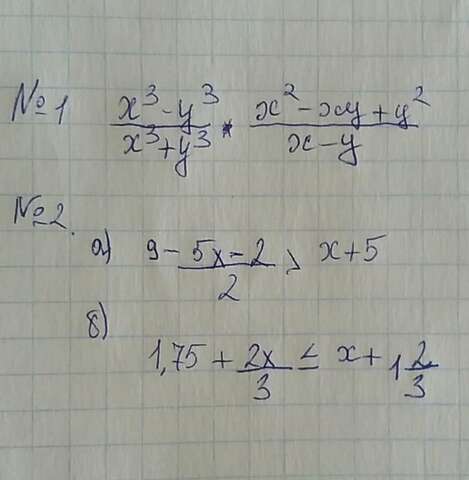 №1 (x³-y³)/(x³+y³) * (x²-xy+y²)/(x-y)
№2.
а) 9 - (5x-2)/2 > x+5
б)
1,75 + 2x/3 ≤ x + 1 2/3